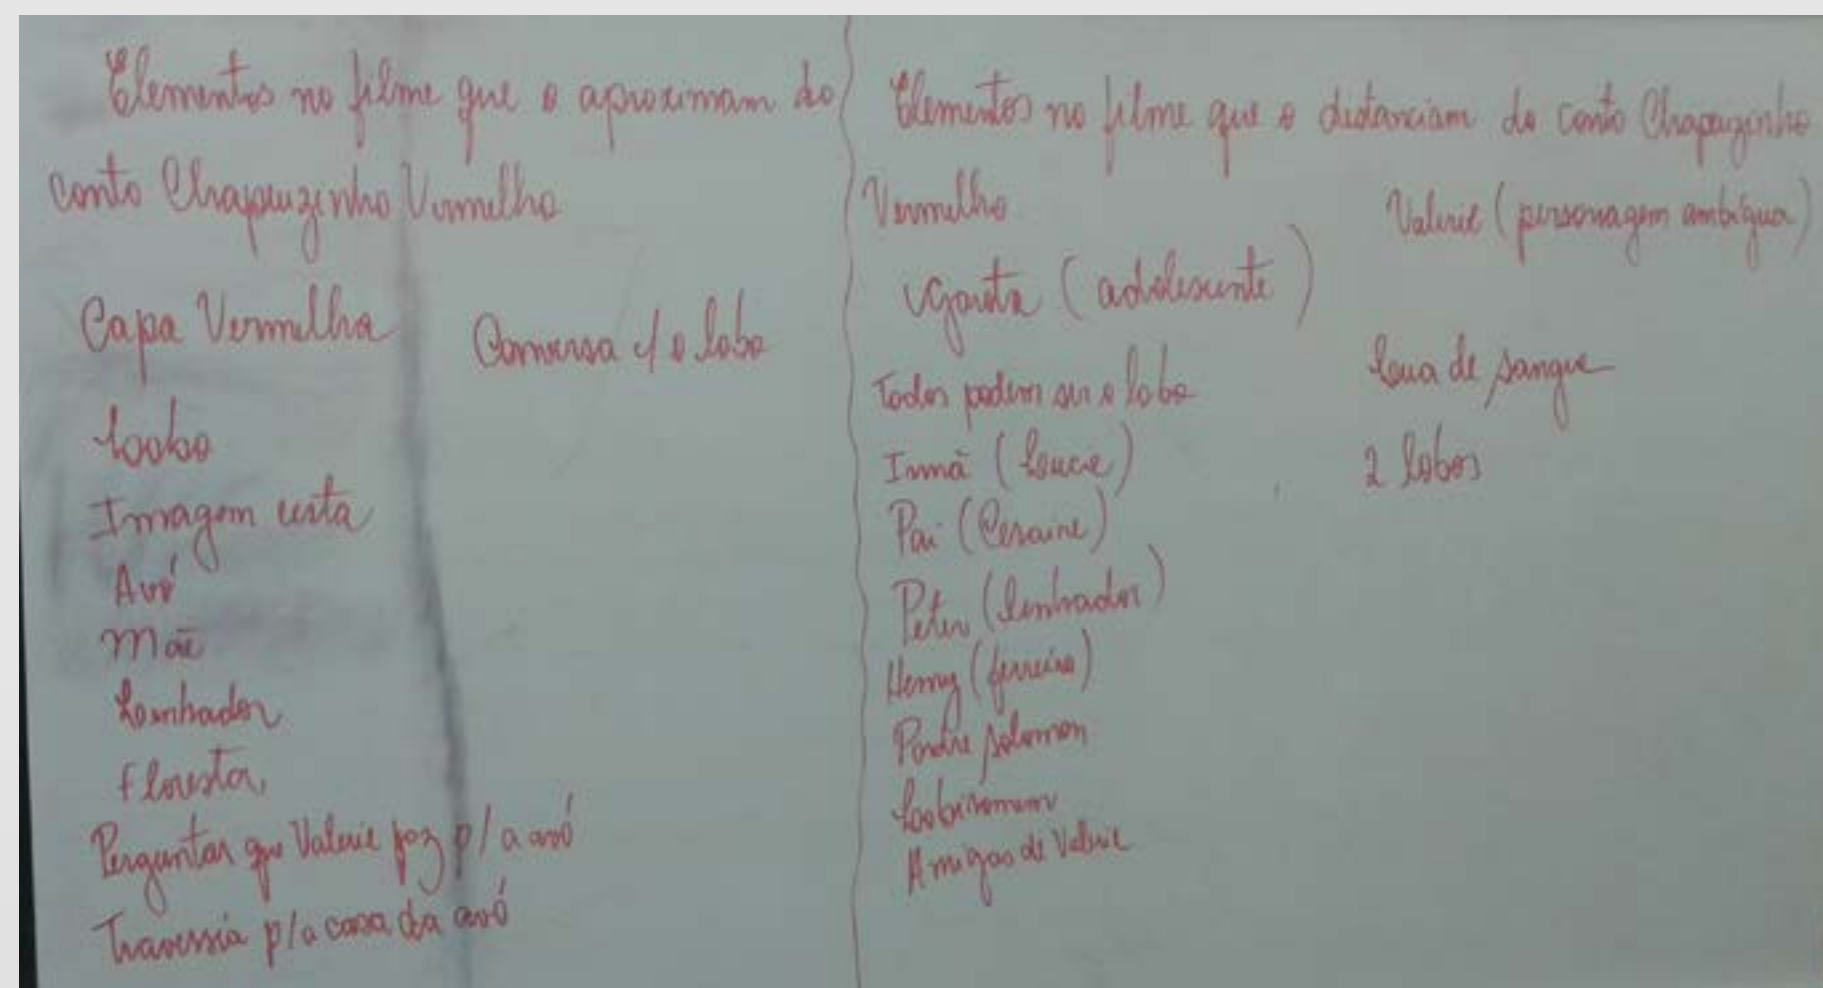 Elementos no filme que o aproximam do
conto Chapeuzinho Vermelho
Capa Vermelha
Conversa c/ o lobo
Lobo
Imagem cesta
Avó
Mãe
Lenhador
Floresta
Perguntas que Valerie faz p/ a avó
Travessia p/ a casa da avó
Elementos no filme que o distanciam do conto Chapeuzinho
Vermelho
Valerie (personagem ambígua)
Garota (adolescente)
Todos podem ser o lobo
Lua de sangue
Irmã (Lucie)
2 lobos
Pai (Cesaire)
Peter (lenhador)
Henry (ferreiro)
Padre Solomon
Lobisomem
Amigas de Valerie